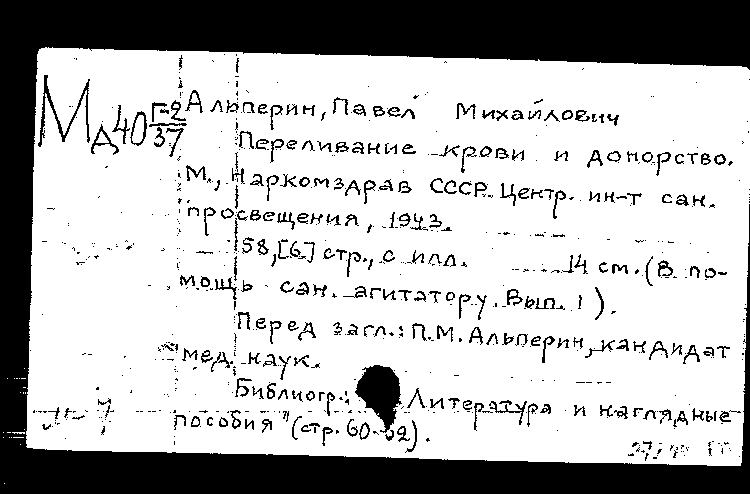 Мд40 Г-2/37
Альперин, Павел Михайлович
Переливание крови и донорство.
М., Наркомздрав СССР. Центр. ин-т сан.
просвещения, 1943.
58,[6] стр., с илл. 14 см. (В по-
мощь сан. агитатору. Вып. 1).
Перед загл.: П.М. Альперин, кандидат
мед. наук.
Библиогр.: Литература и наглядные
пособия" (стр. 60-62).